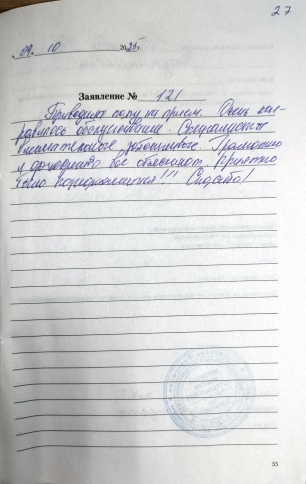 27
"09" 10 2025г.
Заявление № 121
Приводила папу на прием. Очень пон-
равилось обслуживание. Специалисты
внимательные, заботливые. Грамотно
и доходчиво все объясняют. Приятно
было познакомиться!!! Спасибо!
55